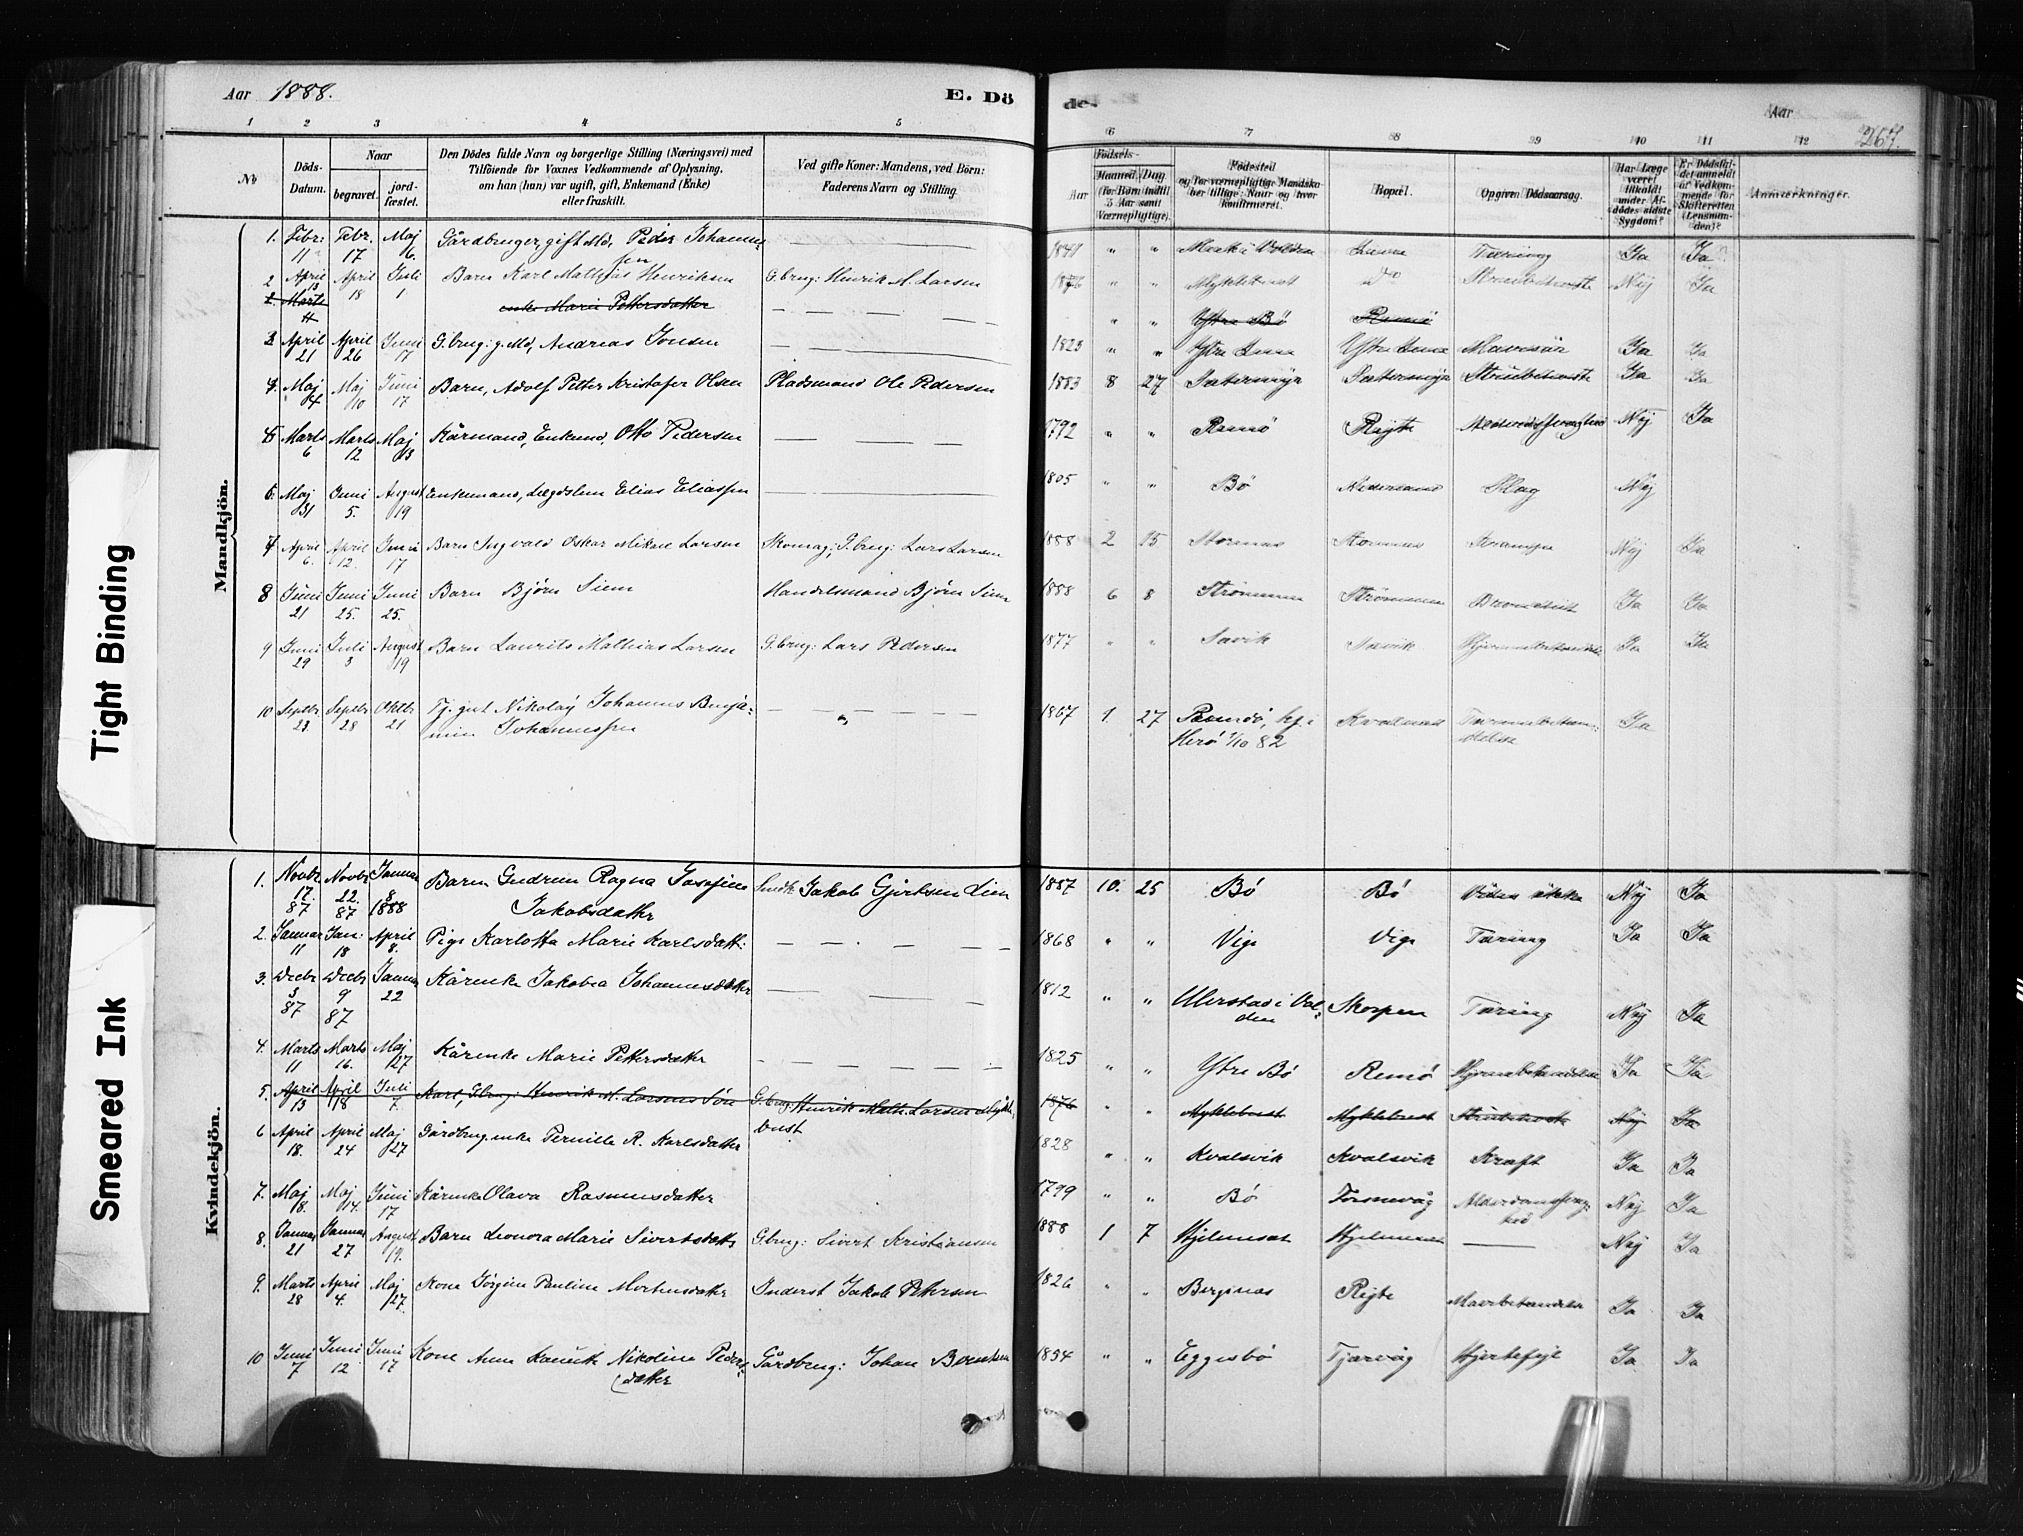 Aar 1888. E. Dö de. Aar 267.
1 2 3 4 5 6 7 8 9 10 11 12
No Döds-Datum. Naar begravet. jord-fæstet. Den Dödes fulde Navn og borgerlige Stilling (Næringsvei) med Tilföiende for Voxnes Vedkommende af Oplysning, om han (hun) var ugift, gift, Enkemand (Enke) eller fraskilt. Ved gifte Koner: Mandens, ved Börn: Faderens Navn og Stilling. Aar Födsels- Maaned Dag (for Börn indtil 5 Aar samt Værnepligtige). Födested og for værnepligtige Mandska- ber tillige: Naar og hvor konfirmeret. Bopæl. Opgiven Dödsaarsag. Har Læge været tilkaldt under Af- dödes sidste Sygdom? Er Dödsfal- det anmeldt af Vedkom- mende for Skifteretten (Lensman- den)? Anmærkninger.
Mandkjön.
1. Febr: 11 Febr. 17 Maj 6 Gårdbruger, gift Md, Peder Johannes-
sen — — — 1841 " " i Volden Tæring Ja Ja
2 April 13 April 18 Juli 1 Barn Karl Mathias Henriksen G.brug: Henrik M. Larsen 1876 " " Myklebust do Strubehoste Nej Ja
2. Marts 11 enke Marie Pettersdatter — — — " " Ystre Bö Remö
3 April 21 April 26 Juni 17 G.brug: g. Md, Andreas Jonsen — — — 1823 " " Ystre Ystre Ja Ja
4. Maj 4 Maj 10 Juni 17 Barn, Adolf Petter Kristofer Olsen Pladsmand Ole Pedersen 1883 8 27 Sætermyr Sætermyr Strubehoste Ja Ja
5 Marts 6 Marts 12 Maj 13 Kårmand, Enkemd, Otto Pedersen — — — 1792 " " Remö Röjte Nej Ja
6. Maj 31 Juni 5. August 19 Enkemand, Lægdslem Elias Eliassen — — — 1805 " " Bö Slag Nej
7 April 6. April 12. Juni 17 Barn Ingvald Oskar Mikael Larsen Skomag; G.brug: Lars Larsen 1888 2 15 Nej Ja
8 Juni 21 Juni 25. Juni 25. Barn Björn Siem Handelsmand Björn Siem 1888 6 8 Strömmen Strömmen Ja Ja
9 Juni 29 Juli 3 August 19 Barn Laurits Mathias Larsen G.brug: Lars Pedersen 1877 " " Sævik Sævik Hjernebetændelse Ja Ja
10 Septbr 23. Septbr 28 Oktb 21 Tj. gut Nikolaj Johannes Benja-
min Johannessen " 1867 1. 27 kf. i
Herö 1/10 82 Kvalsnes Tarmebetæn-
delse Ja
Kvindekjön.
1. Novbr 17. 87 Novbr 22. 87 Januar 8 1888 Barn Gudrun Ragna Josefine
Jakobsdatter Jakob Gjertsen 1887 10. 25 Bö Bö Nej Ja
2. Januar 11 Jan: 18 April 8. Pige Karlotta Marie Karlsdatt: — — — 1868 " " Vige Vige Tæring Ja Ja
3. Decbr 3 87 Decbr 9 87 Januar 22 Kårenke Jakobea Johannesdatter — — — 1812 " " Ulerstad i Vol-
den Skorpen Tæring Nej Ja
4. Marts 11 Marts 16. Maj 27 Kårenke Marie Pettersdatter — — — 1825 " " Ystre Bö Remö Hjernebetændelse Ja Ja
5. April 13 April 18 Juli 7. Karl, G.brug: Henrik M. Larsens Sön G.brug. Henrik Math. Larsen Mykle-
bust 1876 " " Myklebust Myklebust Strubehoste Nej Ja
6 April 18. April 24 Maj 27 Gårdbrug.enke Pernille R. Karlsdatter 1828 " " Kvalsvik Kvalsvik Kræft Ja Ja
7. Maj 8. Maj 14. Juni 17 Kårenke Olava Rasmusdatter 1799 " " Bö Tormevåg Alderdomssvag-
hed Nej Ja
8. Januar 21 Januar 27 August 19. Barn Leonora Marie Sivertsdatt: G.brug: Sivert Kristiansen 1888 1 7 Hjelmeset Hjelmeset — Nej Ja
9. Marts 28 April 4. Maj 27. Kone Jörgine Pauline Mortensdatter Inderst Jakob Petersen 1826 " " Bergsnes Röjte Mavebetændelse Ja Ja
10 Juni 7 Juni 12 Juni 17 Kone Anna Nikoline Peders-
datter Gårdbrug: Johan Berntsen 1854 " " Eggesbö Tjørvåg Hjertefejl Ja Ja
Tight Binding
Smeared Ink